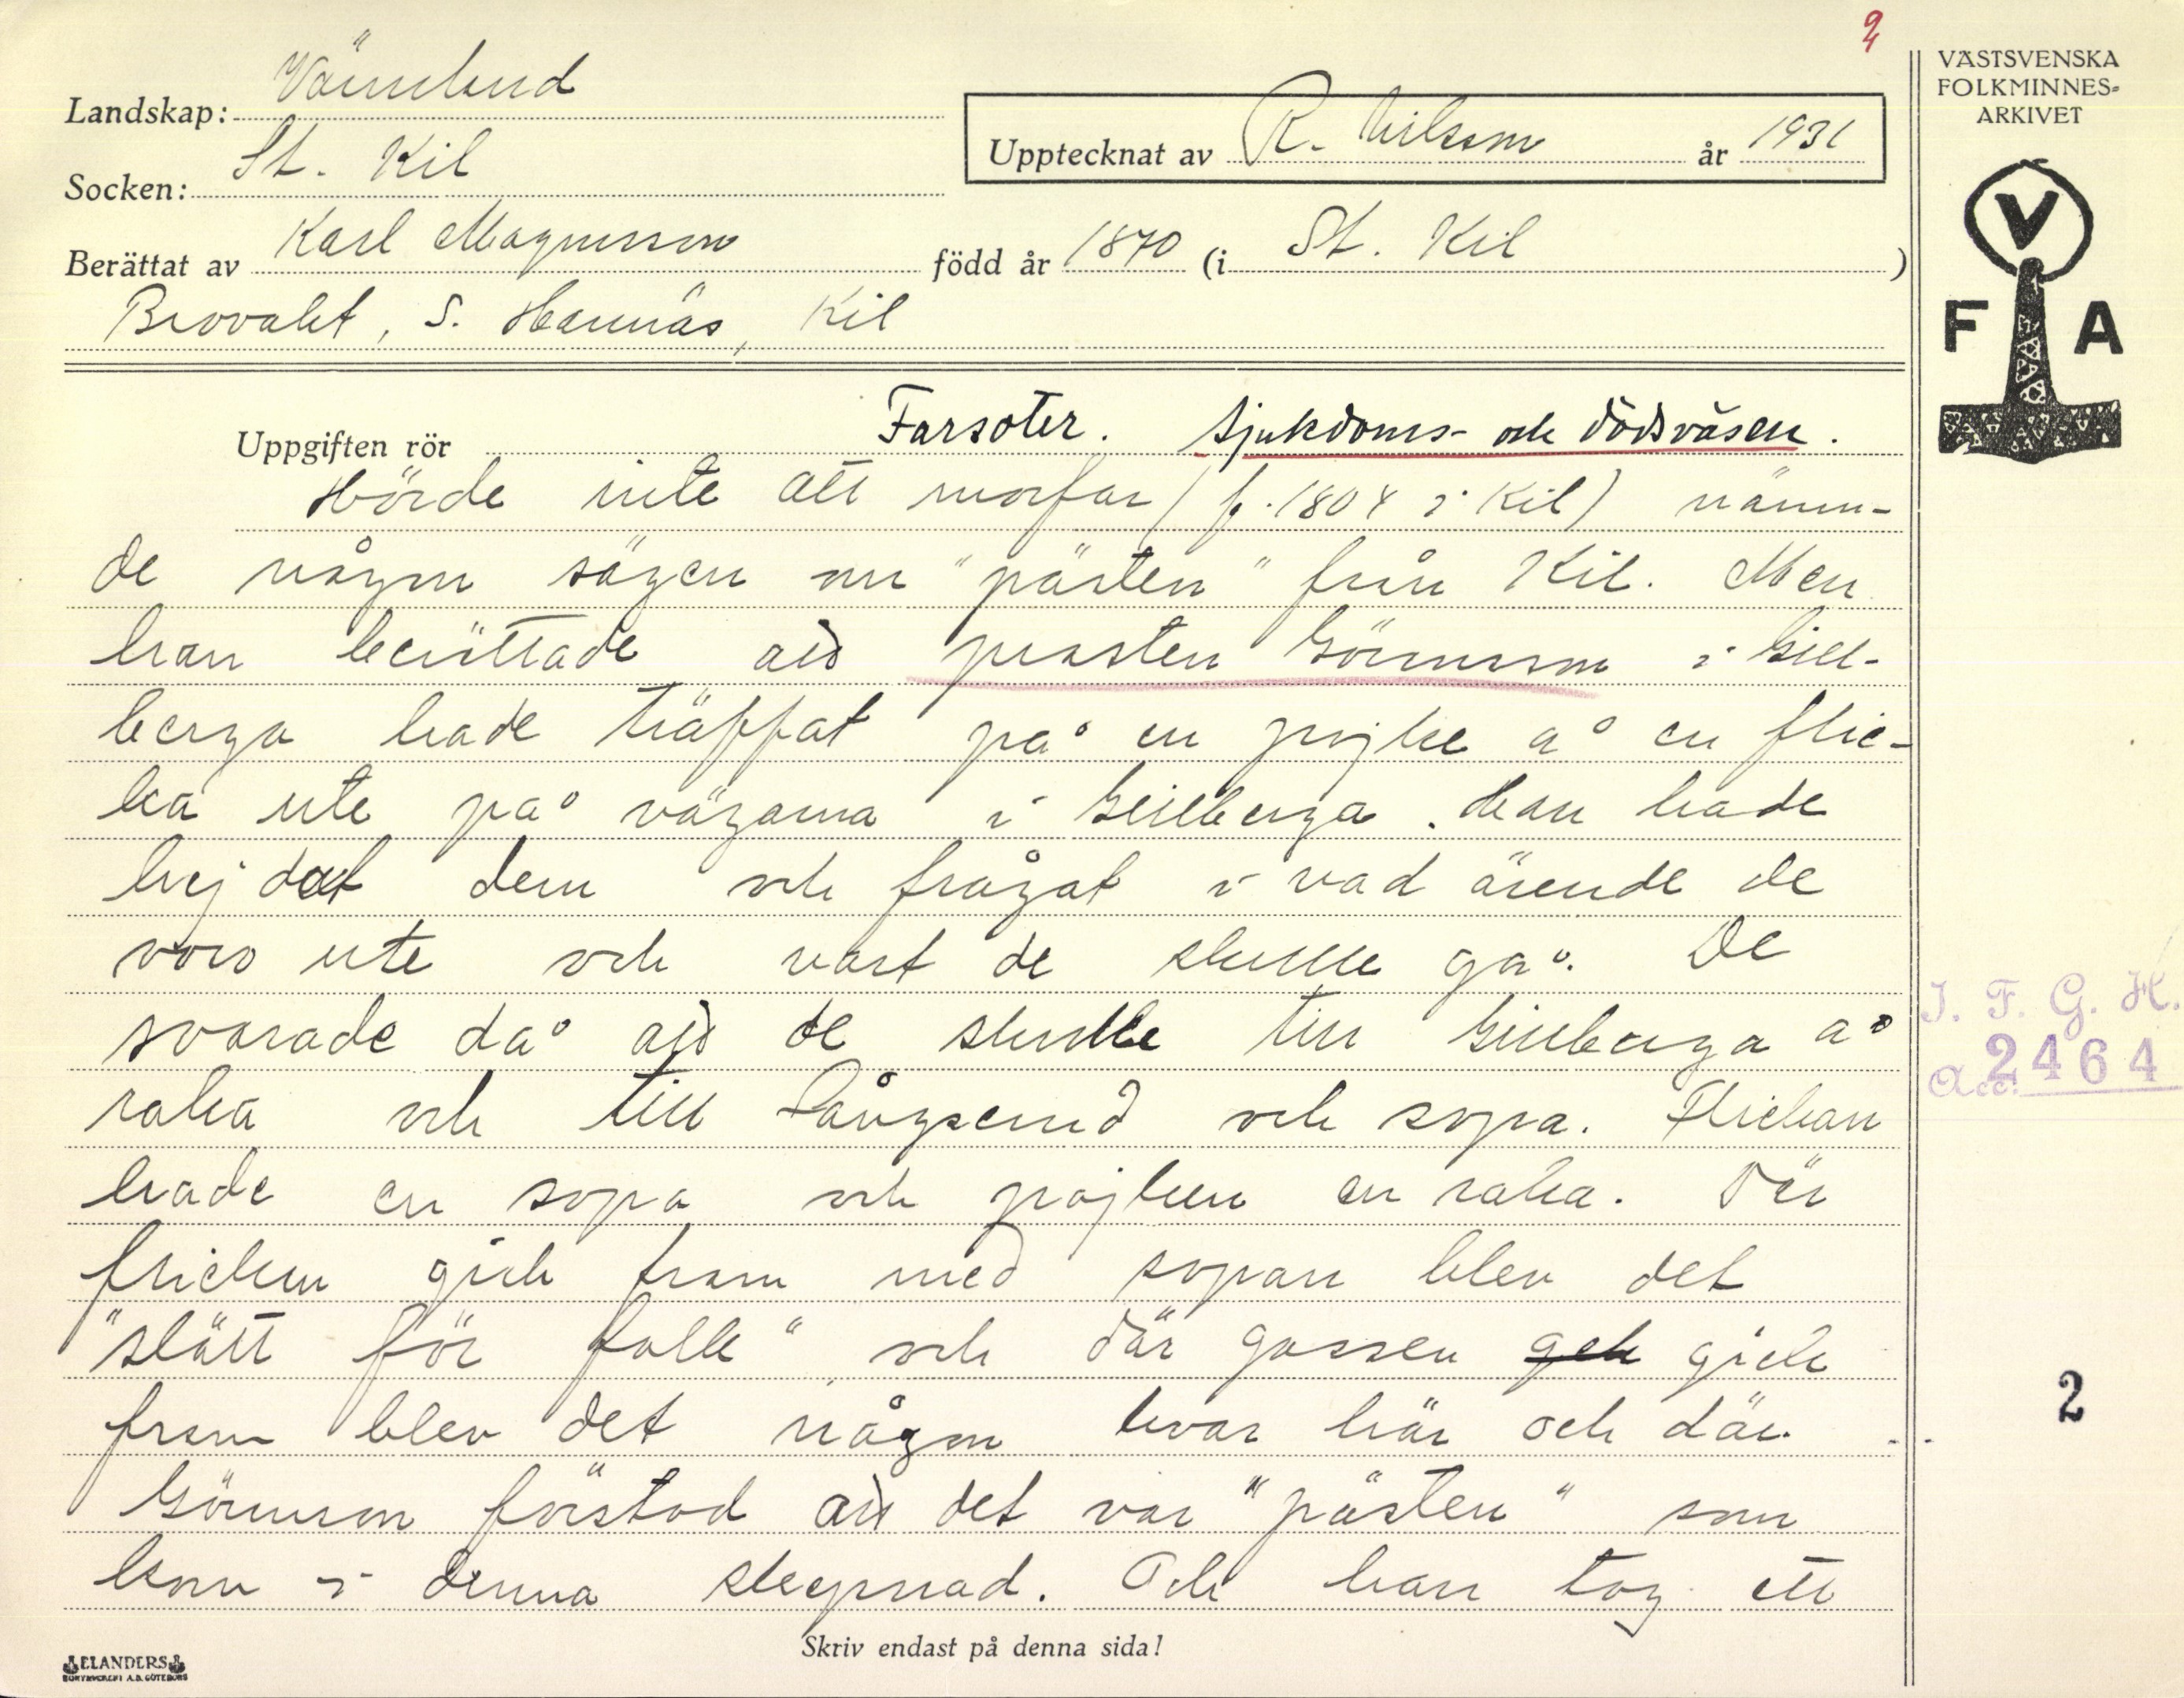 2
VÄSTSVENSKA
FOLKMINNES-
ARKIVET
Landskap: Värmland
Socken: St. Kil
Upptecknat av R. Nilsson år 1931
Berättat av Karl Magnusson född år 1870 (i St. Kil )
Brovalet, S. Hannäs, Kil
V
F A
Uppgiften rör Farsoter. Sjukdoms- och dödsväsen.
Hörde inte att morfar (f. 1804 i Kil) nämn-
de någon sägen om "pästen" från Kil. Men
han berättade att prosten Görnsson i Gill-
berga hade träffat på en pojke å en flic-
ka ute på vägarna i Gillberga. Han hade
hejdat dem och frågat i vad ärende de
voro ute och vart de skulle gå. De
svarade då att de skulle till Gillberga å
raka och till Långserud och sopa. Flickan
hade en sopa och pojken en raka. Där
flickan gick fram med sopan blev det
"slätt för folk" och där gossen gek gick
fram blev det någon kvar här och där.
Görnsson förstod att det var "pästen" som
kom i denna skepnad. Och han tog ett
Skriv endast på denna sida!
I. F. G. H.
Acc. 2464
2
ELANDERS
BOKTRYCKERI A.B. GÖTEBORG